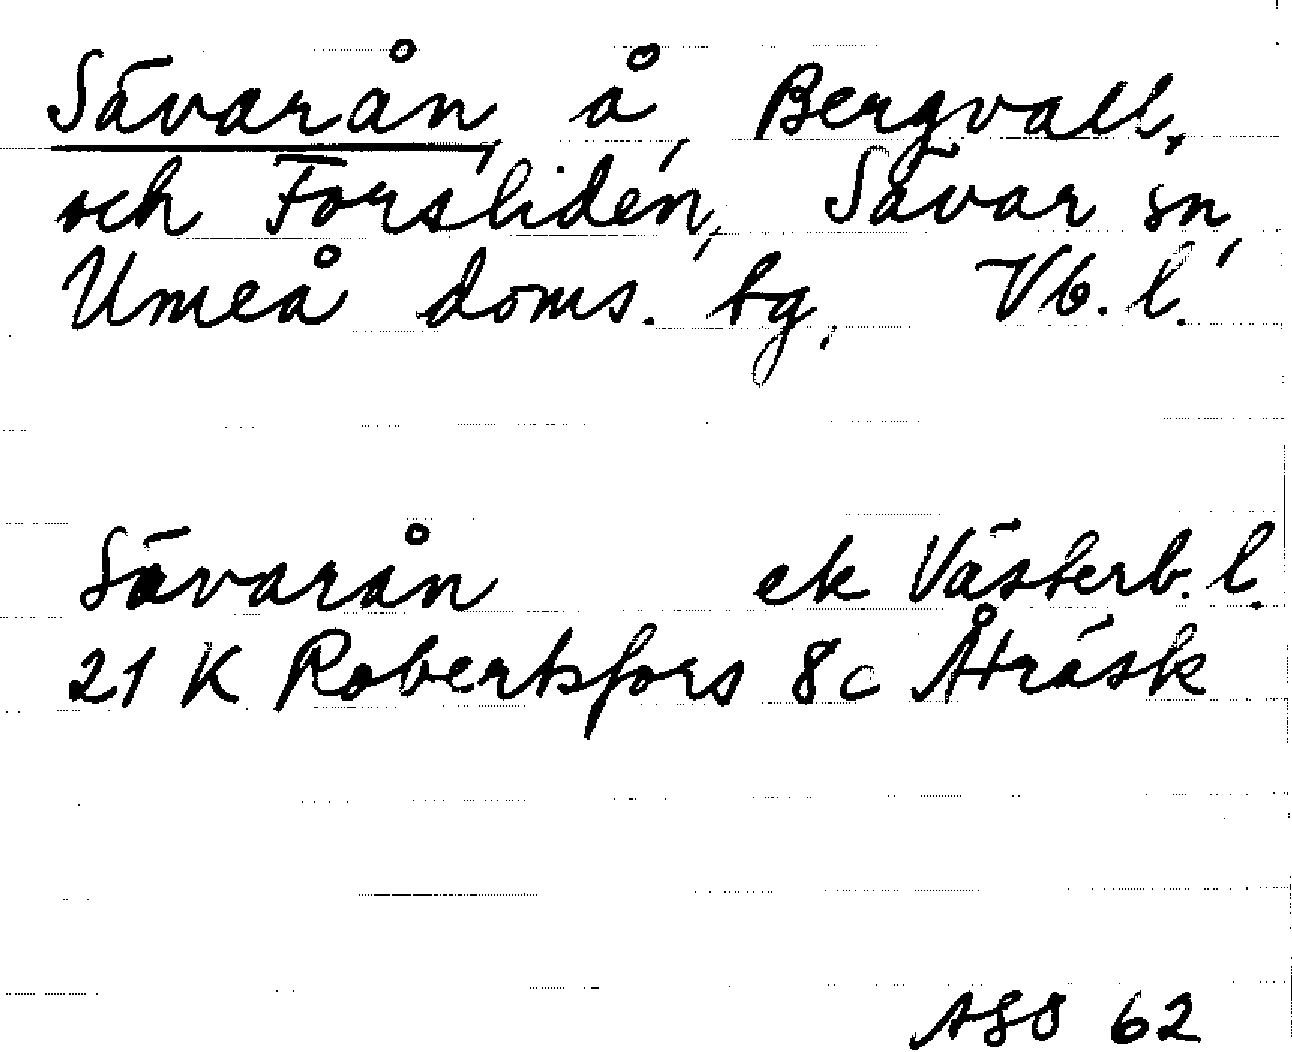 Sävarån, å, Bergvall,
och Forsliden, Sävar sn,
Umeå doms. tg, Vb. l.
Sävarån ek Västerb. l.
21 K Robertsfors 8c Åträsk
62